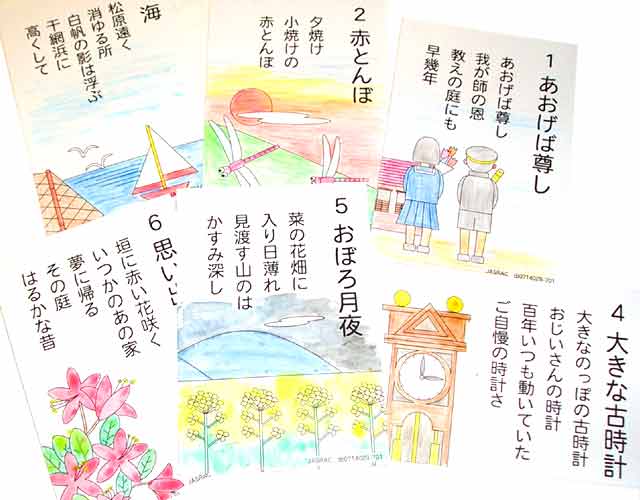 1 あおげば尊し
あおげば尊し
我が師の恩
教えの庭にも
早幾年
JASRAC 出0714029-701
2 赤とんぼ
夕焼け
小焼けの
赤とんぼ
海
松原遠く
消ゆる所
白帆の影は浮ぶ
干網浜に
高くして
4 大きな古時計
大きなのっぽの古時計
おじいさんの時計
百年いつも動いていた
ご自慢の時計さ
5 おぼろ月夜
菜の花畑に
入り日薄れ
見渡す山のは
かすみ深し
JASRAC 出0714029-701
6 思い
垣に赤い花咲く
いつかのあの家
夢に帰る
その庭
はるかな昔